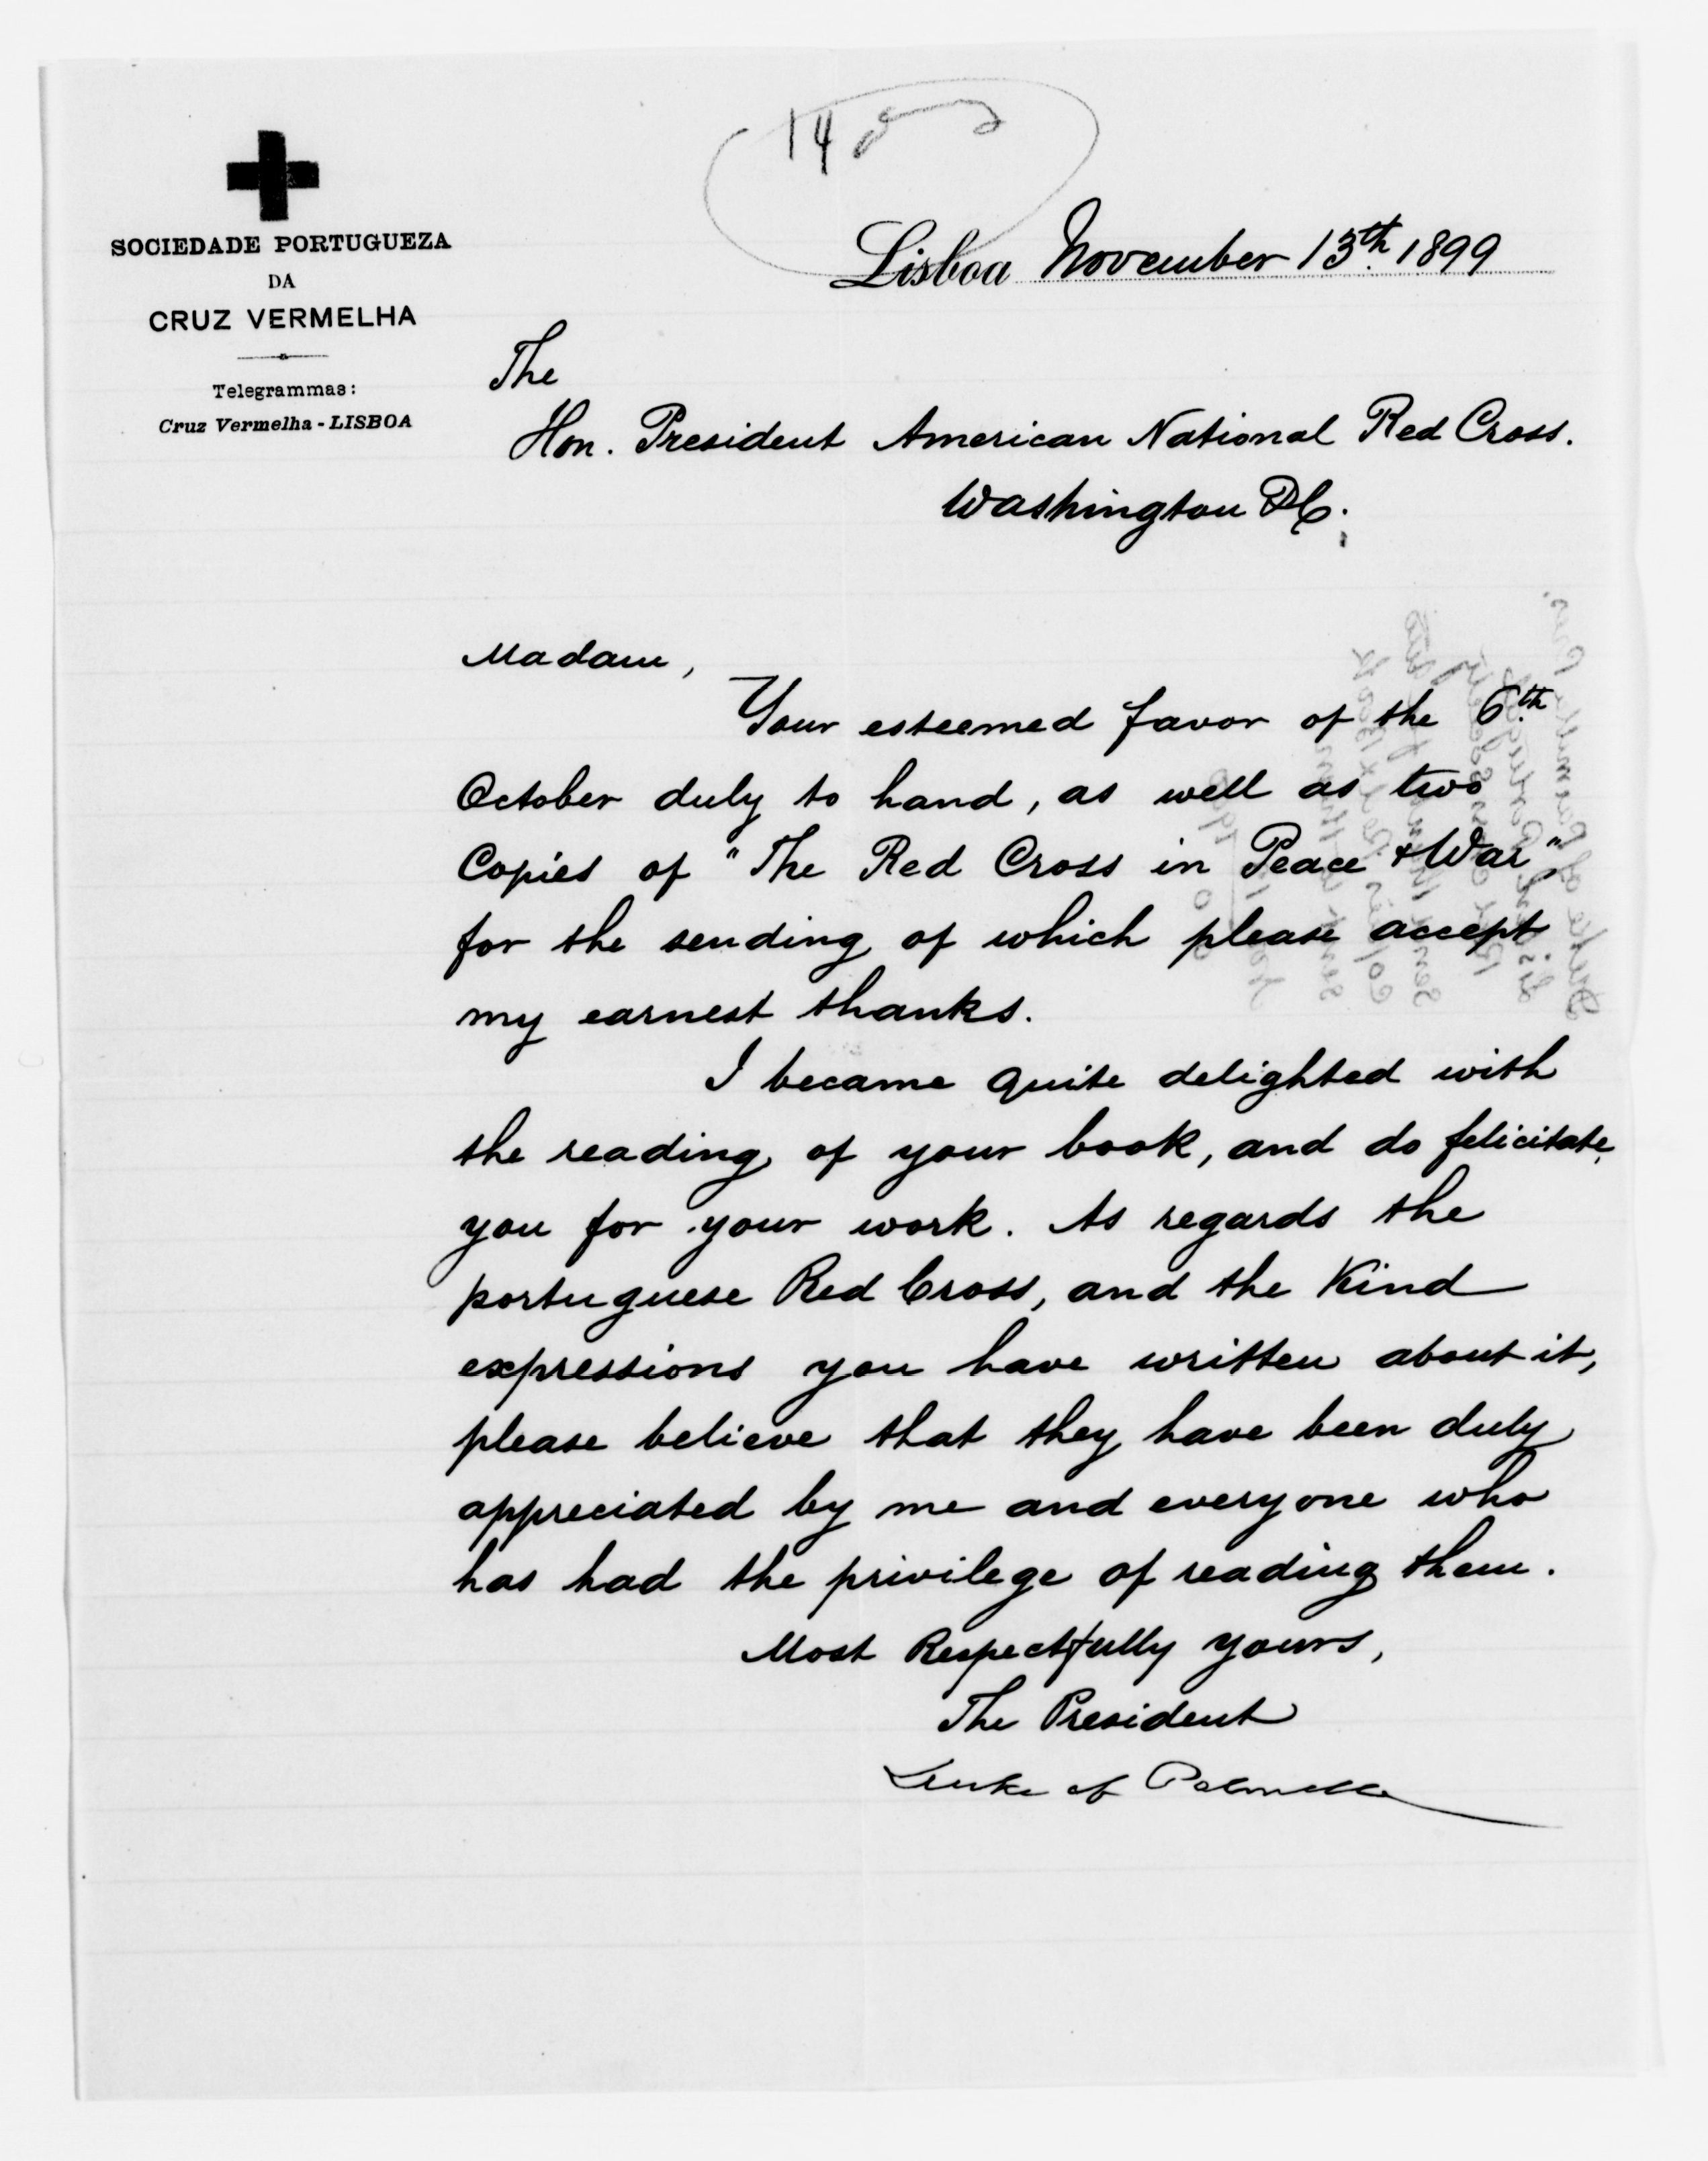 14
SOCIEDADE PORTUGUEZA
DA
CRUZ VERMELHA
Telegrammas:
Cruz Vermelha - LISBOA
Lisboa November 13th 1899
The
Hon. President American National Red Cross.
Washington DC.
Madam,
Your esteemed favor of the 6th
October duly to hand, as well as two
Copies of "The Red Cross in Peace & War"
for the sending of which please accept
my earnest thanks.
I became quite delighted with
the reading of your book, and do felicitate
you for your work. As regards the
portuguese Red Cross, and the Kind
expressions you have written about it,
please believe that they have been duly
appreciated by me and everyone who
has had the privilege of reading them.
Most Respectfully yours,
The President
Duke of Palmella